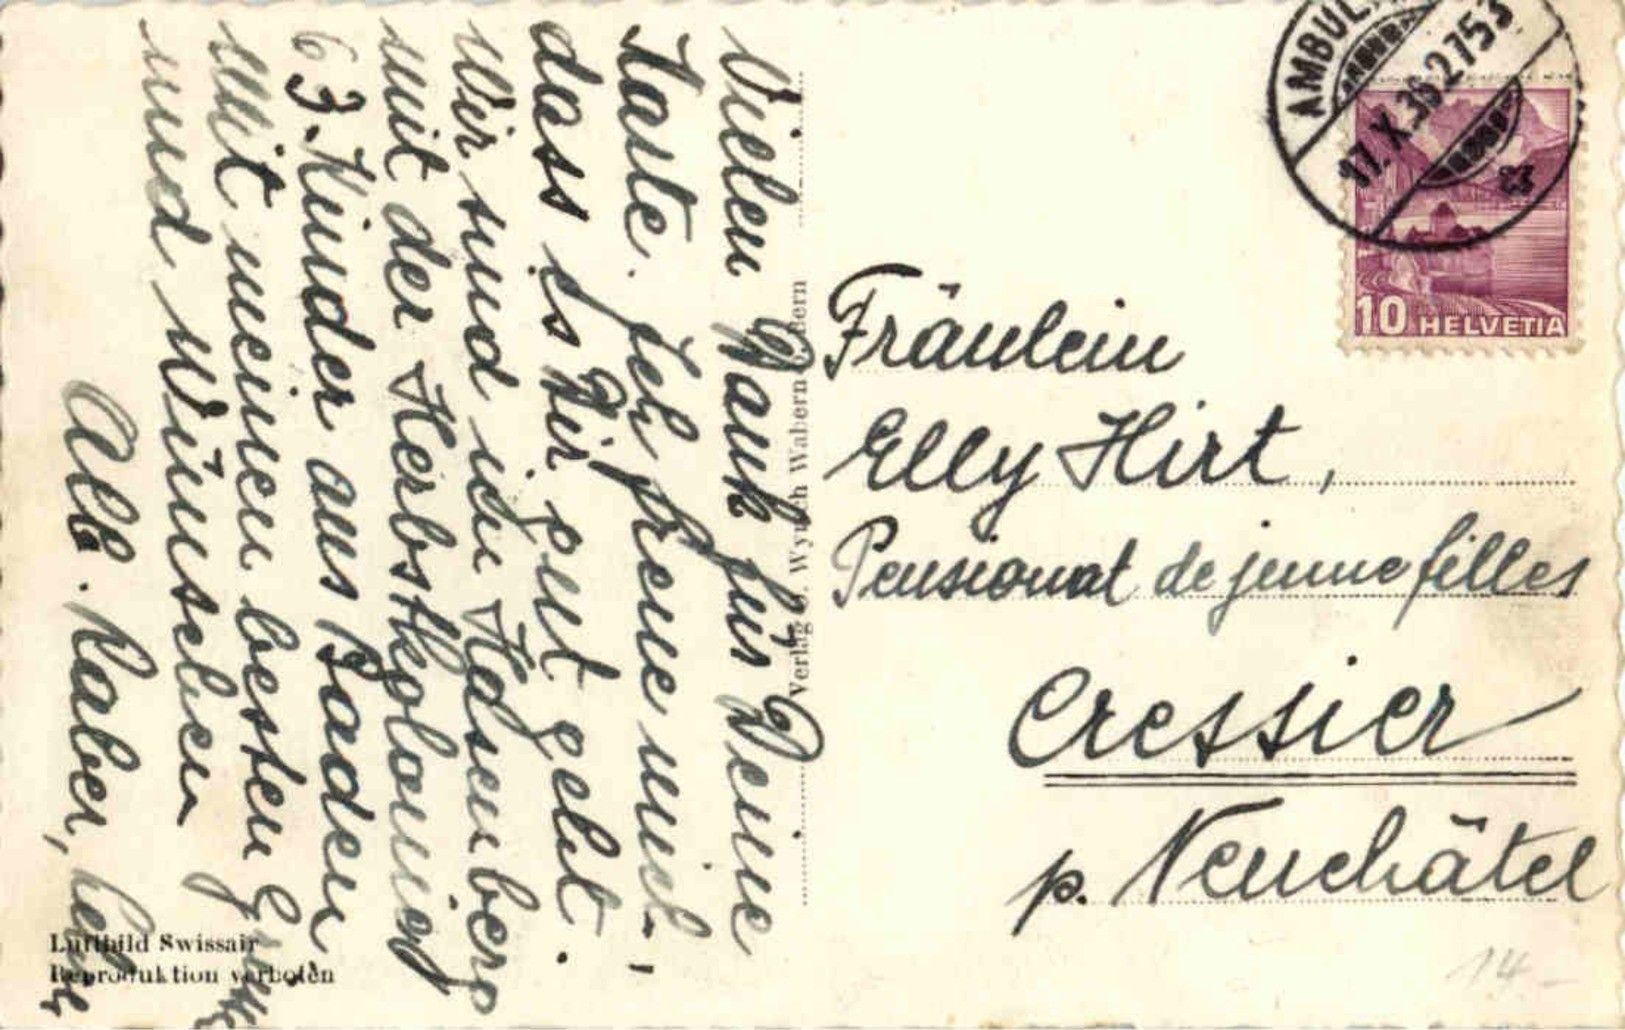 Vielen Dank für Deine
Karte. Ich freue mich,
dass es Dir gut geht.
Wir sind in Hasenberg
mit der Herbstkolonie,
63 Kinder aus Baden
Mit meinen besten
und Wünschen
Alb. Räber,
Luftbild Swissair
Reproduktion verboten
Verlag G. Wyrsch Wabern
AMBUL
17.X.36.2753
10 HELVETIA
Fräulein
Elly Hirt,
Pensionat de jeune filles
Cressier
p. Neuchâtel
14 –